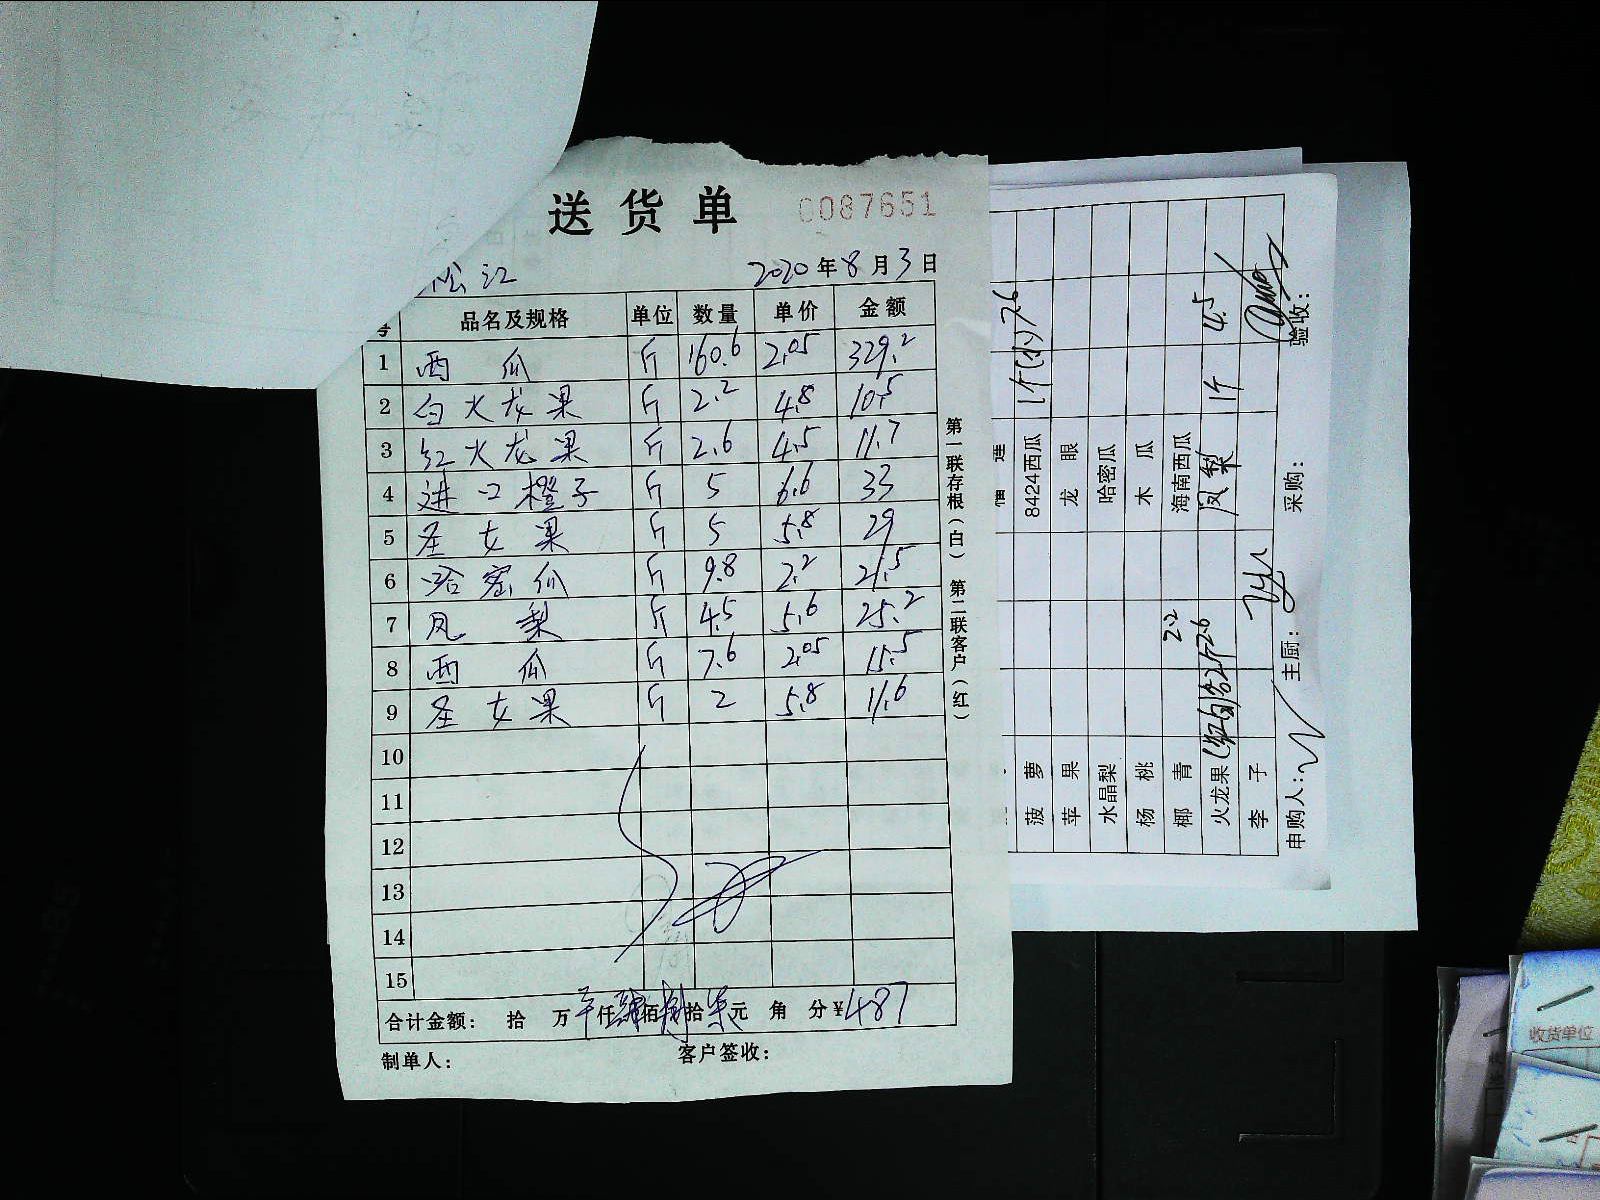 送货单 0087651
松江 2020年8月3日
号 品名及规格 单位 数量 单价 金额
1 西瓜 斤 160.6 2.05 329.2
2 白火龙果 斤 2.2 4.8 10.5
3 红火龙果 斤 2.6 4.5 11.7
4 进口橙子 斤 5 6.6 33
5 圣女果 斤 5 5.8 29
6 哈密瓜 斤 9.8 2.2 21.5
7 凤梨 斤 4.5 5.6 25.2
8 西瓜 斤 7.6 2.05 15.5
9 圣女果 斤 2 5.8 11.6
10
11
12
13
14
15
合计金额: 拾 万 仟 肆佰捌拾柒元 角 分 ¥487
制单人: 客户签收:
第一联存根(白) 第二联客户(红)
菠萝 8424西瓜 1个(小) 7.6
苹果 龙眼
水晶梨 哈密瓜
杨桃 木瓜
椰青 2.2 海南西瓜
火龙果 2.6 凤梨 1个 4.5
李子
申购人: 主厨: 采购: 验收:
收货单位